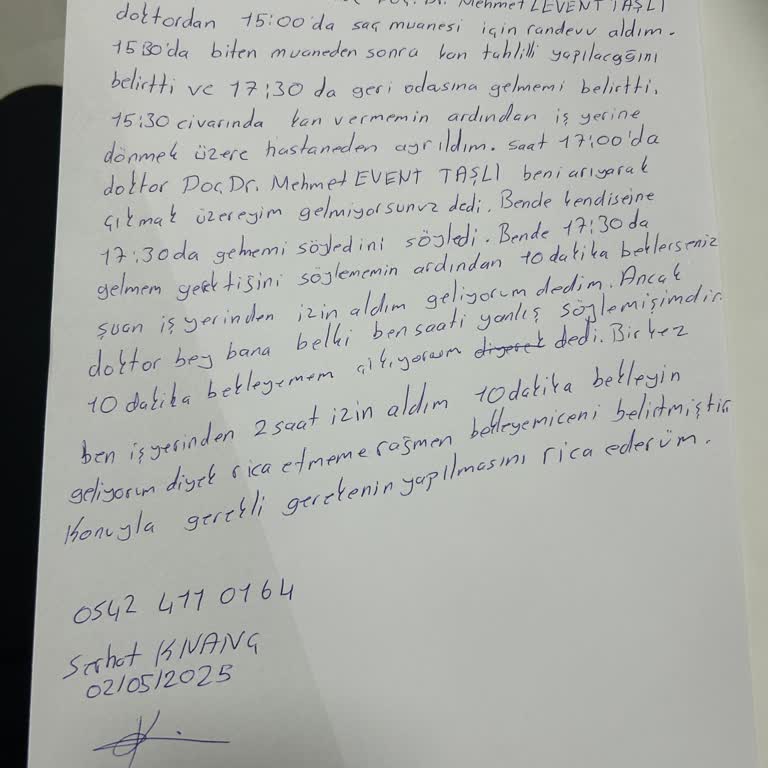 Doç. Dr. Mehmet LEVENT TAŞLI
doktordan 15:00'da saç muanesi için randevu aldım.
15:30'da biten muaneden sonra kan tahlili yapılacağını
belirtti ve 17:30 da geri odasına gelmemi belirtti.
15:30 civarında kan vermemin ardından iş yerine
dönmek üzere hastaneden ayrıldım. saat 17:00'da
doktor Doç.Dr. Mehmet EVENT TAŞLI beni arıyarak
çıkmak üzereyim gelmiyorsunuz dedi. Bende kendiseine
17:30 da gelmemi söyledini söyledi. Bende 17:30 da
gelmem gerektiğini söylememin ardından 10 dakika beklerseniz
şuan iş yerinden izin aldım geliyorum dedim. Ancak
doktor bey bana belki ben saati yanlış söylemişimdir
10 dakika bekleyemem çıkıyorum diyerek dedi. Bir kez
ben iş yerinden 2 saat izin aldım 10 dakika bekleyin
geliyorum diyek rica etmeme rağmen bekleyemiceni belirtmiştir
Konuyla gerekli gerekenin yapılmasını rica ederüm.
0542 411 0164
Serhat KIVANÇ
02/05/2025